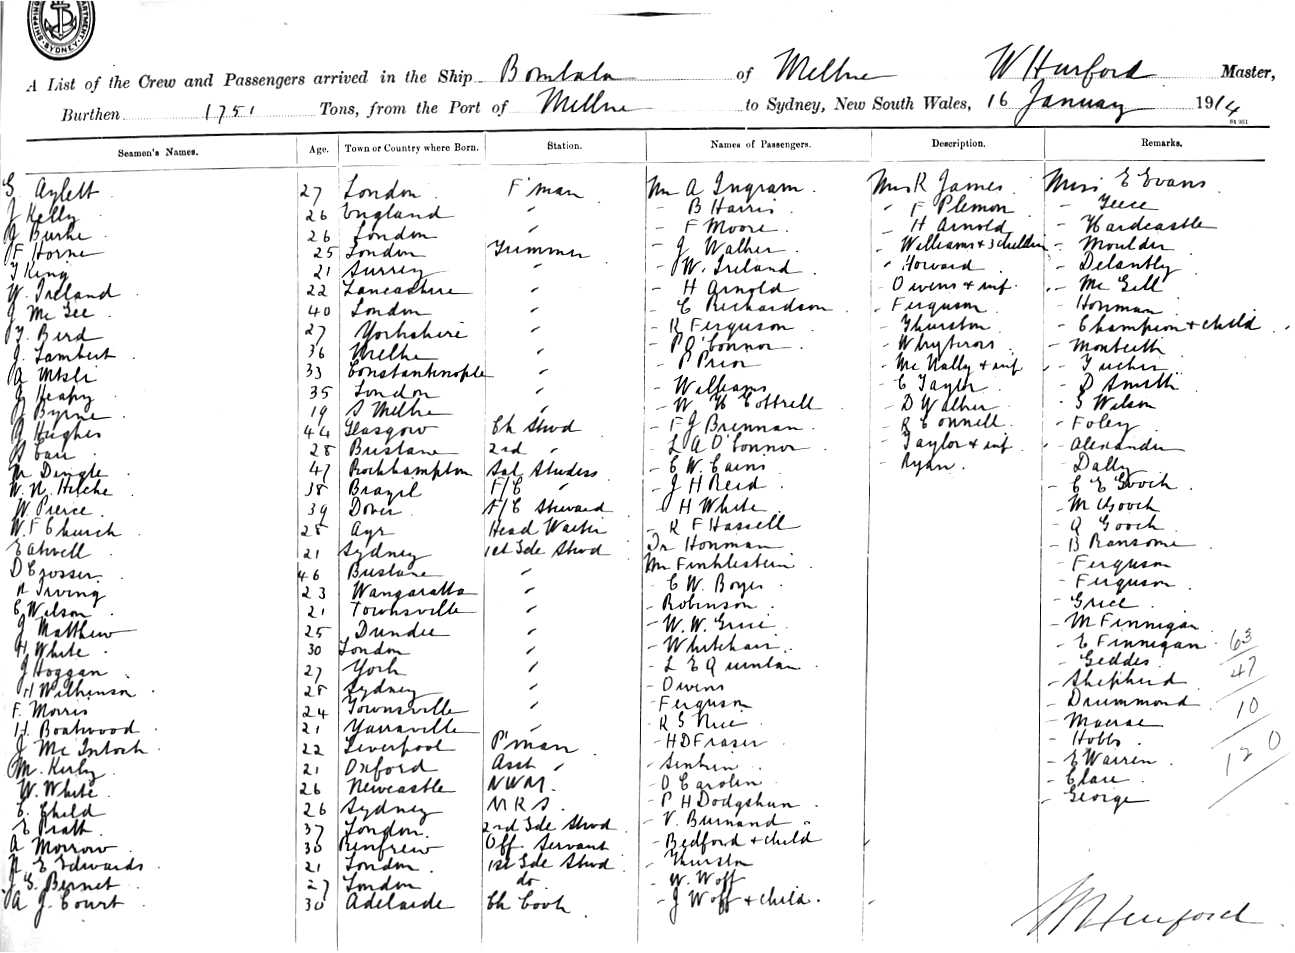 SHIPPING DEPARTMENT SYDNEY
A List of the Crew and Passengers arrived in the Ship Bombala of Melbne W Hurford Master,
Burthen 1751 Tons, from the Port of Melbne to Sydney, New South Wales, 16 January 1914
Seamen's Names. Age. Town or Country where Born. Station. Names of Passengers. Description. Remarks.
G Aylett 27 London F'man Mr A Ingram Mrs R James Miss E Evans
J Kelly 26 England " - B Harris " F Plemon - Geece
J Burke 26 London " - F Moore - H Arnold - Hardcastle
F Horne 25 London Trimmer - J Walker - Williams & 3 children - Moulder
T King 21 Surrey " - W. Ireland - Howard - Delantly
W. Ireland 22 Lancashire " - H Arnold - Owens & inf. - Mc Gill
J Mc Gee 40 London " - C Richardson - Ferguson - Honman
T. Bird 27 Yorkshire " - R Ferguson - Thurston - Champion & child
J. Lambert 36 Melbne " - P O'Connor - Monteith
A 33 Constantinople " - P Prior - Mc Nally & inf - Tucker
J Heapy 35 London " - Williams - C Taylor - D Smith
J Byrne 19 S Melbne " - W H Cottrell - D Walker - S Wilson
J Hughes 44 Glasgow Ch Stwd - F J Brennan - R Connell - Foley
A Carr 28 Brisbane 2nd " - L A O'Connor - Taylor & inf - Alexander
N Dingle 47 Rockhampton - C W. Cains - Ryan - Dally
W. N. 38 Brazil F/C " - J H Reid - C E Gooch
W Pierce 39 Dover F/C Steward - H White - M Gooch
W. F Church 28 Ayr Head Waiter - R F Hassell - A Gooch
E Atwell 21 Sydney 1st Sde Stwd Dr Honman - B Ransome
D Crosser 46 Brisbane " Mr Finklestein - Ferguson
R Irving 23 Wangaratta " - C W. Boyes - Ferguson
C Wilson 21 Townsville " - Robinson - Grice
J Matthew 25 Dundee " - W. W. Grice - M Finnigan
H White 30 London " - Whitehair - E Finnigan 63
J Hoggan 27 York " - L E Quinlan - Geddes 47
H Wilkinson 28 Sydney " - Owens - Shepherd
F. Morris 24 Townsville " - Ferguson - Drummond 10
H. Boatwood 21 Yarraville " - R S Rice - Macrae
J Mc Intosh 22 Liverpool P'man - H D Fraser - Hobbs 120
M. Kirby 21 Oxford Asst " - Jenkin - E Warren
W. White 26 Newcastle NWM - D Carolin - Clare
C. Child 26 Sydney M R S. - P H Dodgshun - George
E Pratt 37 London 2nd Sde Stwd - V. Burnand
A Morrow 30 Renfrew Off Servant - Bedford & child
N E Edwards 21 London 1st Sde Stwd - Thurston
J. G. Bernet 27 London do. - W. Woff
A J. Court 30 Adelaide Ch Cook - J Woff & child.
W Hurford